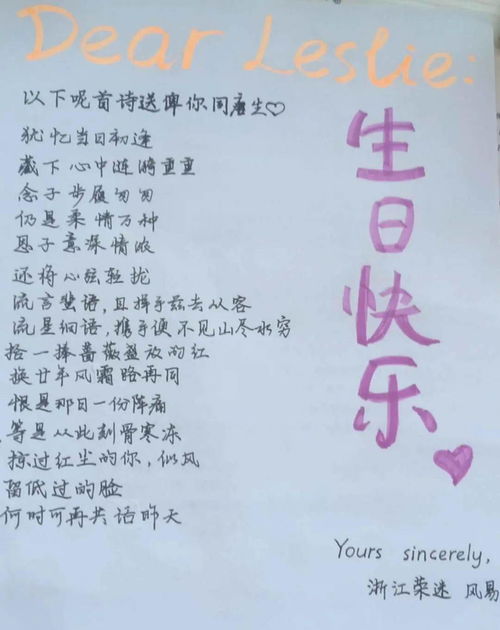 Dear Leslie:
以下呢首诗送俾你同唐生♡
犹忆当日初逢
藏下心中涟漪重重
念子步履匆匆
仍是柔情万种
恩子意深情浓
还将心弦轻扰
流言蜚语,且挥手兹去从容
流星细语,携手便不见山尽水穷
拾一捧蔷薇盛放的红
换廿年风霜路再同
恨是那日一份阵痛
等是从此刻骨寒冻
掠过红尘的你,似风
留低过的脸
何时可再共话昨天
生日快乐
Yours sincerely,
浙江荣迷 风易